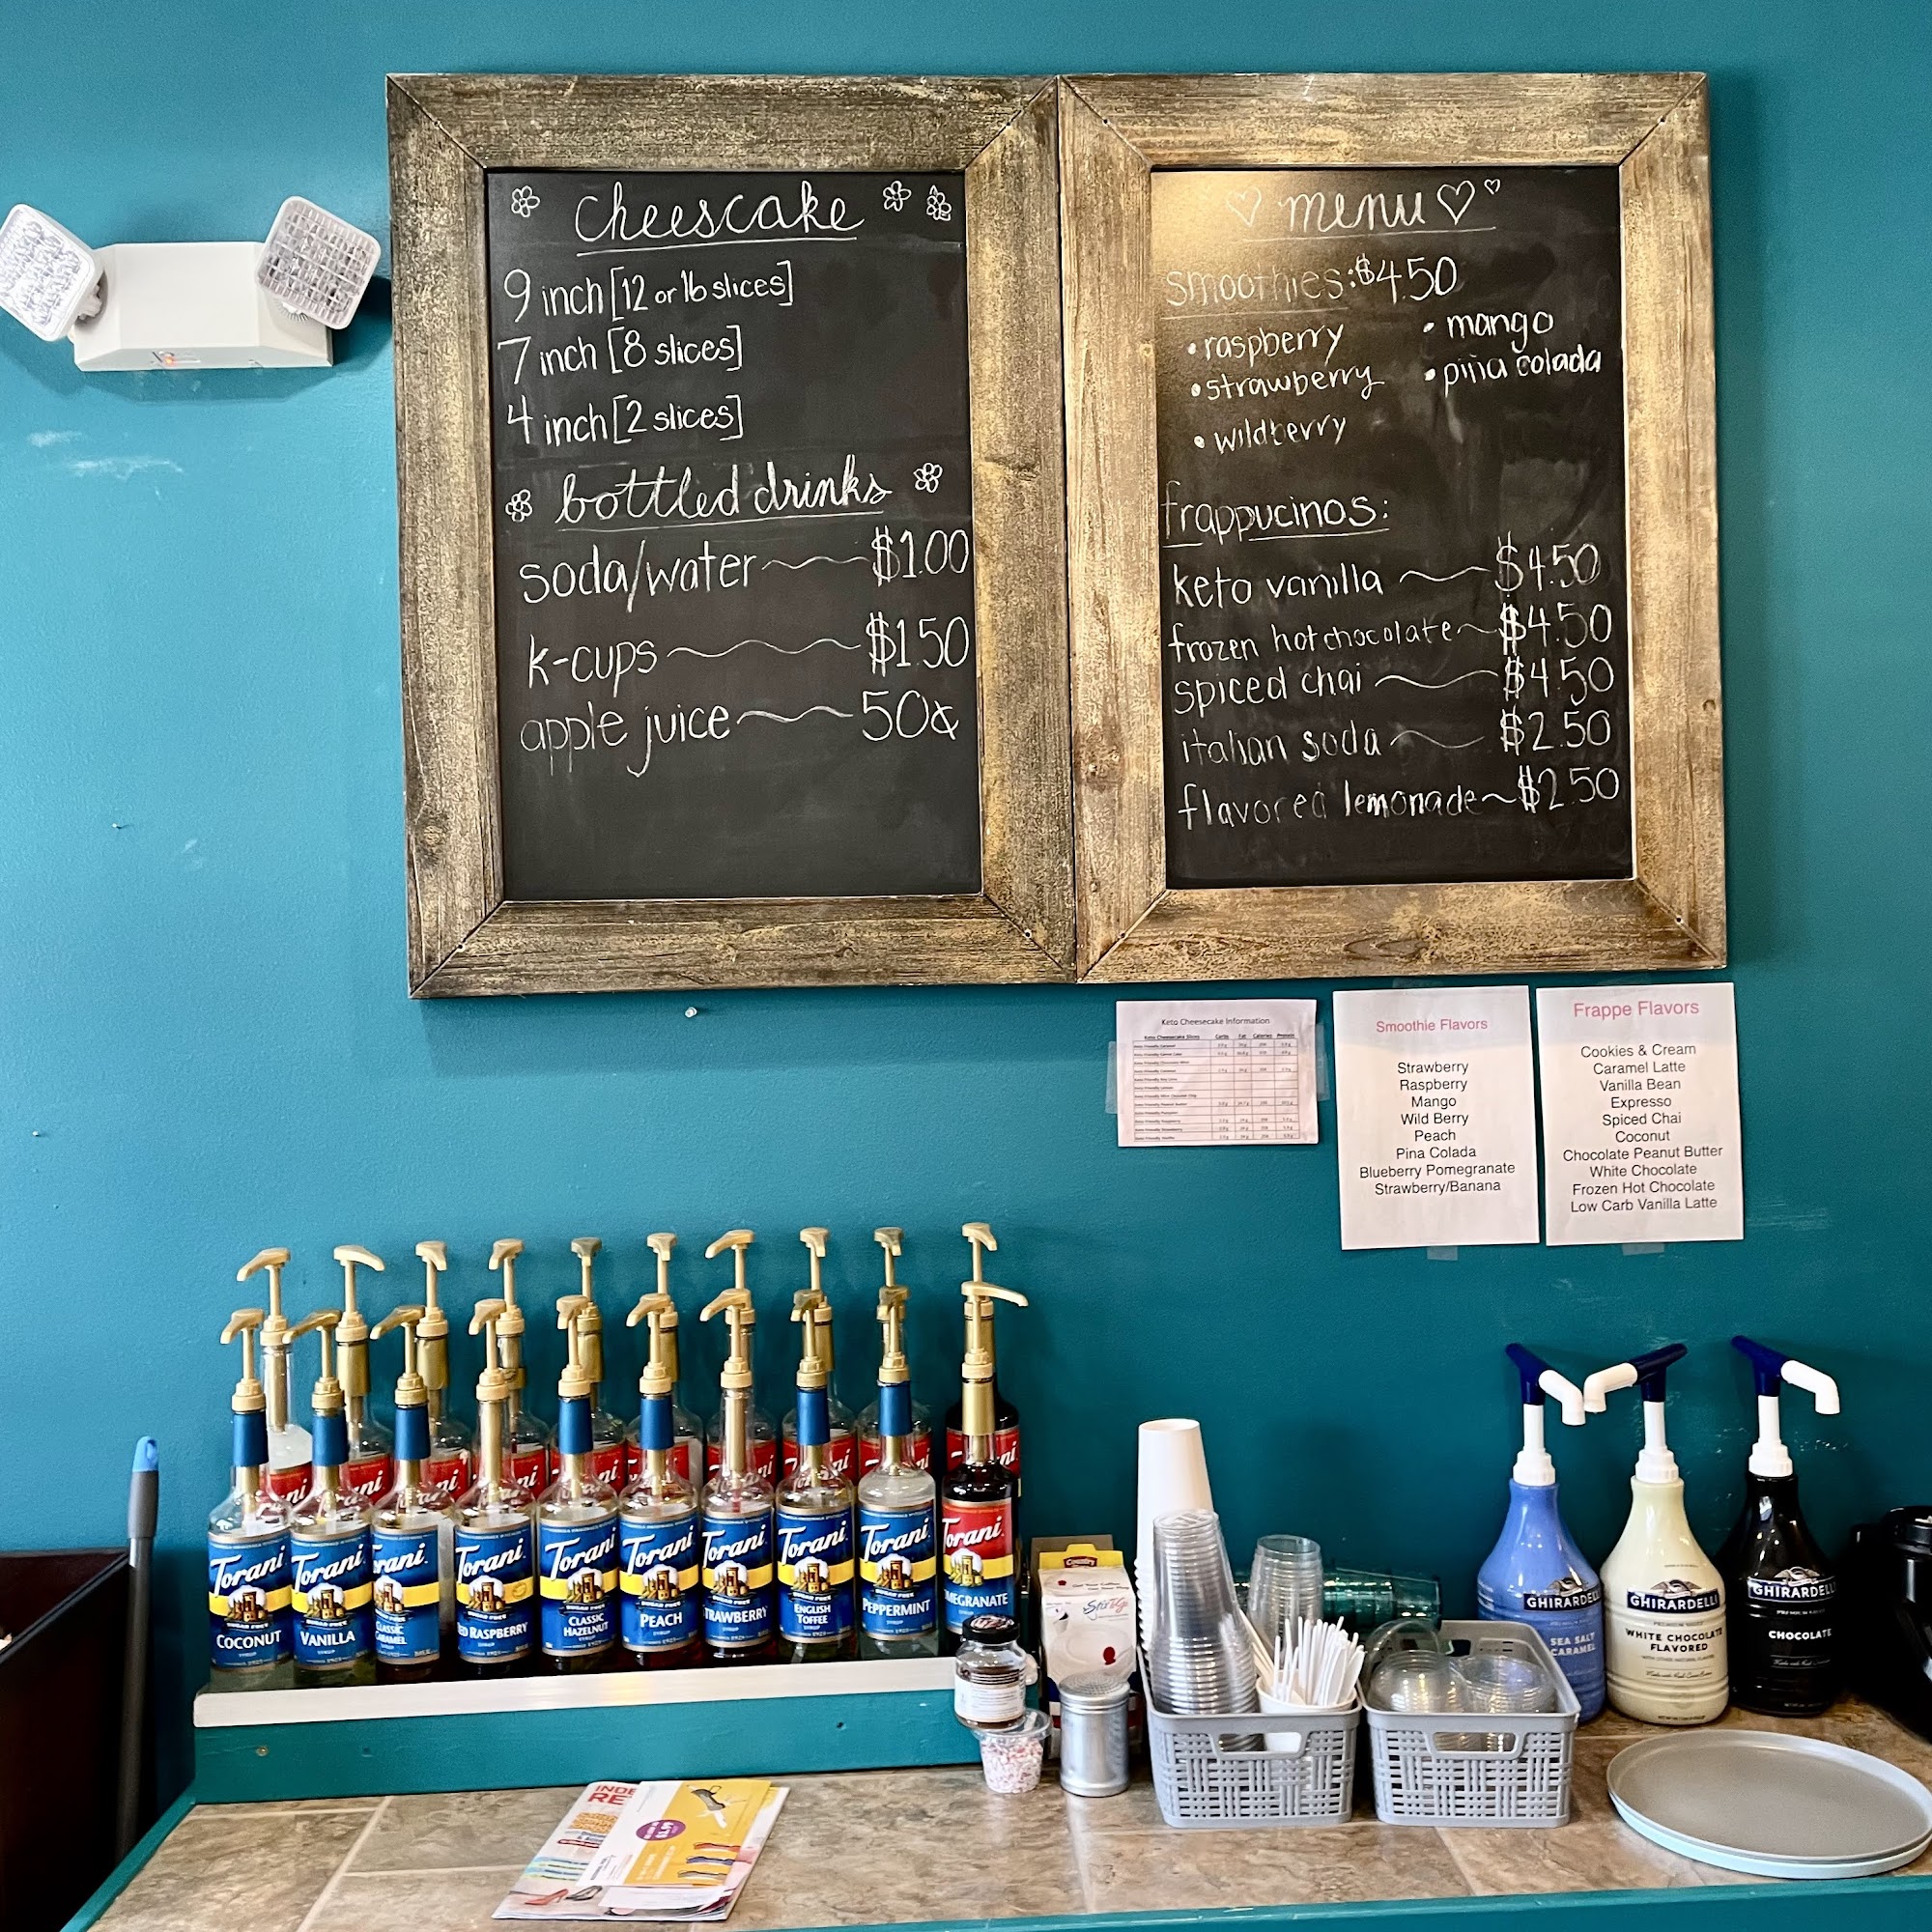 cheescake
9 inch [12 or 16 slices]
7 inch [8 slices]
4 inch [2 slices]
bottled drinks
soda/water $1.00
k-cups $1.50
apple juice 50¢
menu
smoothies: $4.50
• raspberry
• strawberry
• wildberry
• mango
• piña colada
frappucinos:
keto vanilla $4.50
frozen hot chocolate $4.50
spiced chai $4.50
italian soda $2.50
flavored lemonade $2.50
Keto Cheesecake Information
Keto Cheesecake Slices Carbs Fat Calories Protein
Smoothie Flavors
Strawberry
Raspberry
Mango
Wild Berry
Peach
Pina Colada
Blueberry Pomegranate
Strawberry/Banana
Frappe Flavors
Cookies & Cream
Caramel Latte
Vanilla Bean
Expresso
Spiced Chai
Coconut
Chocolate Peanut Butter
White Chocolate
Frozen Hot Chocolate
Low Carb Vanilla Latte
Torani
SUGAR FREE
COCONUT
Torani
SUGAR FREE
VANILLA
orani
CLASSIC
CARAMEL
Torani
SUGAR FREE
RED RASPBERRY
Torani
SUGAR FREE
CLASSIC
HAZELNUT
Torani
SUGAR FREE
PEACH
Torani
TRAWBERRY
Torani
SUGAR FREE
ENGLISH
TOFFEE
Torani
SUGAR FREE
PEPPERMINT
Torani
MEGRANATE
GHIRARDELLI
SEA SALT
CARAMEL
GHIRARDELLI
WHITE CHOCOLATE
FLAVORED
GHIRARDELLI
CHOCOLATE